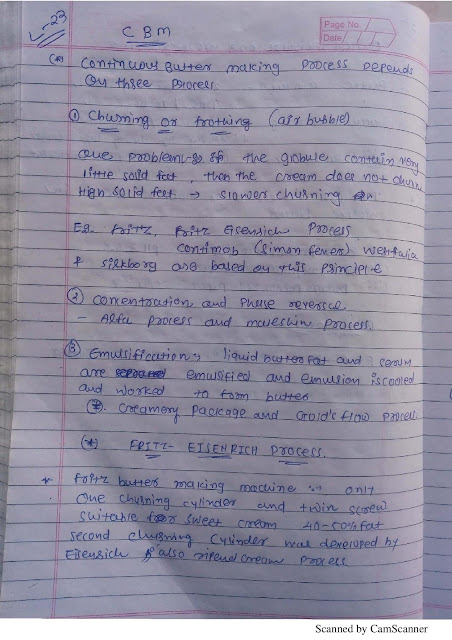 23
CBM
Page No.
Date
(*) Continuous Butter making process depends
on three process
① Churning or frothing (air bubble)
One problem is if the globule contain very
little solid fat, then the cream does not churn
High solid feet → slower churning
Eg. Fritz, Fritz Eisensich Process
contimab (simon feres) westfalia
& silkborg are based on this principle
② Concentration and Phase reversal
- Alfa process and maleshin process.
③ Emulsification, liquid butter fat and serum
are emulsified and emulsion is cooled
and worked to form butter
(*). Creamery Package and Gold'n flow process
(*) FRITZ- EISENRICH PROCESS.
* Fritz butter making machine :- only
one churning cylinder and twin screw
suitable for sweet cream 40-50% fat
second churning cylinder was developed by
Eisensich also ripend cream process
Scanned by CamScanner